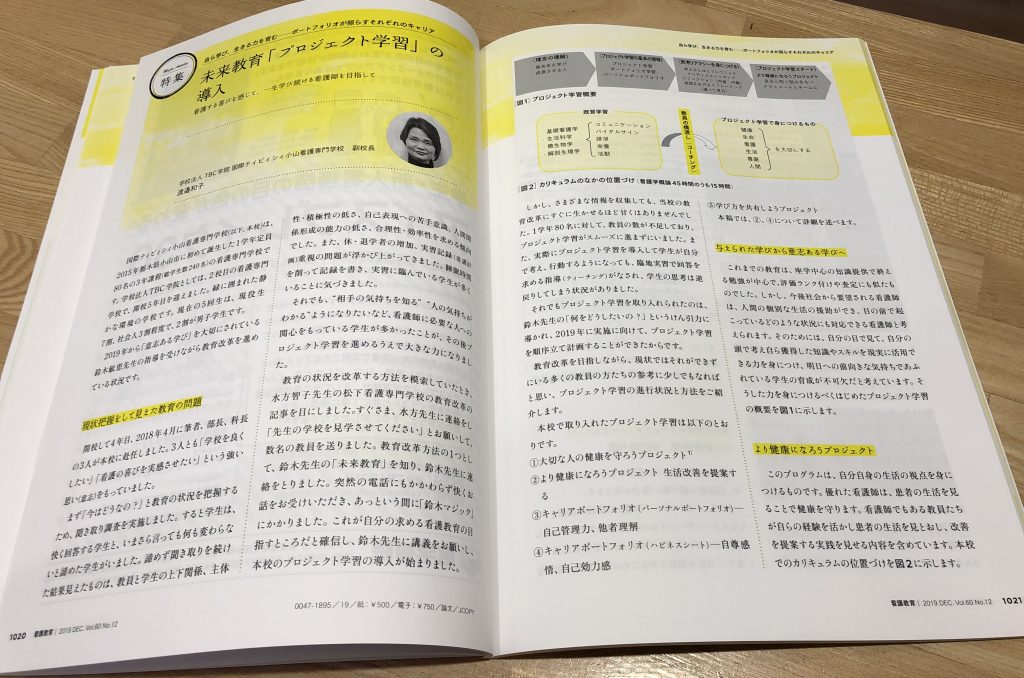 自ら学び、生きる力を育む──ポートフォリオが照らすそれぞれのキャリア
特集
未来教育「プロジェクト学習」の
導入
看護する喜びを感じて、一生学び続ける看護師を目指して
学校法人 TBC学院 国際ティビィシィ小山看護専門学校 副校長
渡邉和子
国際ティビィシィ小山看護専門学校(以下、本校)は、
2015年栃木県小山市に初めて誕生した1学年定員
80名の3年課程(総学生数240名)の看護専門学校で
す。学校法人TBC学院としては、2校目の看護専門
学校で、開校5年目を迎えました。緑に囲まれた静
かな環境の学校です。現在の5回生は、現役生
7割、社会人3割程度で、2割が男子学生です。
2019年から「意志ある学び」を大切にされている
鈴木敏恵先生の指導を受けながら教育改革を進め
ている状況です。
現状把握をして見えた教育の問題
開校して4年目、2018年4月に筆者、部長、科長
の3人が本校に赴任しました。3人とも「学校を良く
したい」「看護の喜びを実感させたい」という強い
思い(意志)をもっていました。
まず「今はどうなの?」と教育の状況を把握する
ため、聞き取り調査を実施しました。すると学生は、
快く回答する学生と、いまさら言っても何も変わらな
いと諦めた学生がいました。諦めず聞き取りを続け
た結果見えたものは、教員と学生の上下関係、主体
性・積極性の低さ、自己表現への苦手意識、人間関
係形成の能力の低さ、合理性・効率性を求める傾向
でした。また、休・退学者の増加、実習記録(看護計
画)重視の問題が浮かび上がってきました。睡眠時間
を削って記録を書き、実習に臨んでいる学生が多く
いることに気づきました。
それでも、“相手の気持ちを知る” “人の気持ちが
わかる”ようになりたいなど、看護師に必要な人への
関心をもっている学生が多かったことが、その後プ
ロジェクト学習を進めるうえで大きな力になりまし
た。
教育の状況を改革する方法を模索していたとき、
水方智子先生の松下看護専門学校の教育改革の
記事を目にしました。すぐさま、水方先生に連絡をし
「先生の学校を見学させてください」とお願いして、
数名の教員を送りました。教育改革方法の1つとし
て、鈴木先生の「未来教育」を知り、鈴木先生に連
絡をとりました。突然の電話にもかかわらず快くお
話をお受けいただき、あっという間に「鈴木マジック」
にかかりました。これが自分の求める看護教育の目
指すところだと確信し、鈴木先生に講義をお願いし、
本校のプロジェクト学習の導入が始まりました。
0047-1895/19/紙:¥500/電子:¥750/論文/JCOPY
1020 看護教育 | 2019 DEC. Vol.60 No.12
自ら学び、生きる力を育む──ポートフォリオが照らすそれぞれのキャリア
〔理念の理解〕
プロジェクト学習の基本の習得
ポートフォリオ学習
パーソナルポートフォリオ
思考リテラシーを身につける
プロジェクト学習スタート
より健康になろうプロジェクト
[図1] プロジェクト学習概要
既習学習
・基礎看護学
・生活科学
・微生物学
・解剖生理学
コミュニケーション
バイタルサイン
排泄
栄養
活動
教員の橋渡し(コーチング)
プロジェクト学習で身につけるもの
健康
生命
看護
生活
尊厳
人間
を大切にする
[図2] カリキュラムのなかの位置づけ(看護学概論 45時間のうち15時間)
しかし、さまざまな情報を収集しても、当校の教
育改革にすぐに生かせるほど甘くはありませんでし
た。1学年80名に対して、教員の数が不足しており、
プロジェクト学習がスムーズに進まずにいました。ま
た、実際にプロジェクト学習を導入して学生が自分
で考え、行動するようになっても、臨地実習で回答を
求める指導(ティーチング)がなされ、学生の思考は逆
戻りしてしまう状況がありました。
それでもプロジェクト学習を取り入れられたのは、
鈴木先生の「何をどうしたいの?」というけん引力に
導かれ、2019年に実施に向けて、プロジェクト学習
を順序立て計画することができたからです。
教育改革を目指しながら、現状ではそれができず
にいる多くの教員の方たちの参考に少しでもなれば
と思い、プロジェクト学習の進行状況と方法をご紹
介します。
本校で取り入れたプロジェクト学習は以下のとお
りです。
①大切な人の健康を守ろうプロジェクト1)
②より健康になろうプロジェクト 生活改善を提案す
る
③キャリアポートフォリオ(パーソナルポートフォリオ)─
自己管理力、他者理解
④キャリアポートフォリオ(ハピネスシート)─自尊感
情、自己効力感
⑤学び方を共有しようプロジェクト
本稿では、②、④について詳細を述べます。
与えられた学びから意志ある学びへ
これまでの教育は、座学中心の知識提供で終え
る勉強が中心で、評価ランク付けや査定にも似たも
のでした。しかし、今後社会から要望される看護師
は、人間の個別な生活の援助ができ、目の前で起
こっているどのような状況にも対応できる看護師と考
えられます。そのためには、自分の目で見て、自分の
頭で考え自ら獲得した知識やスキルを現実に活用で
きる力を身につけ、明日への前向きな気持ちであふ
れている学生の育成が不可欠だと考えています。そ
うした力を身につけるべくはじめたプロジェクト学習
の概要を図1に示します。
より健康になろうプロジェクト
このプログラムは、自分自身の生活の視点を身に
つけるものです。優れた看護師は、患者の生活を見
ることで健康を守ります。看護師でもある教員たち
が自らの経験を活かし患者の生活を見とおし、改善
を提案する実践を見せる内容を含めています。本校
でのカリキュラムの位置づけを図2に示します。
看護教育 | 2019 DEC. Vol.60 No.12 1021